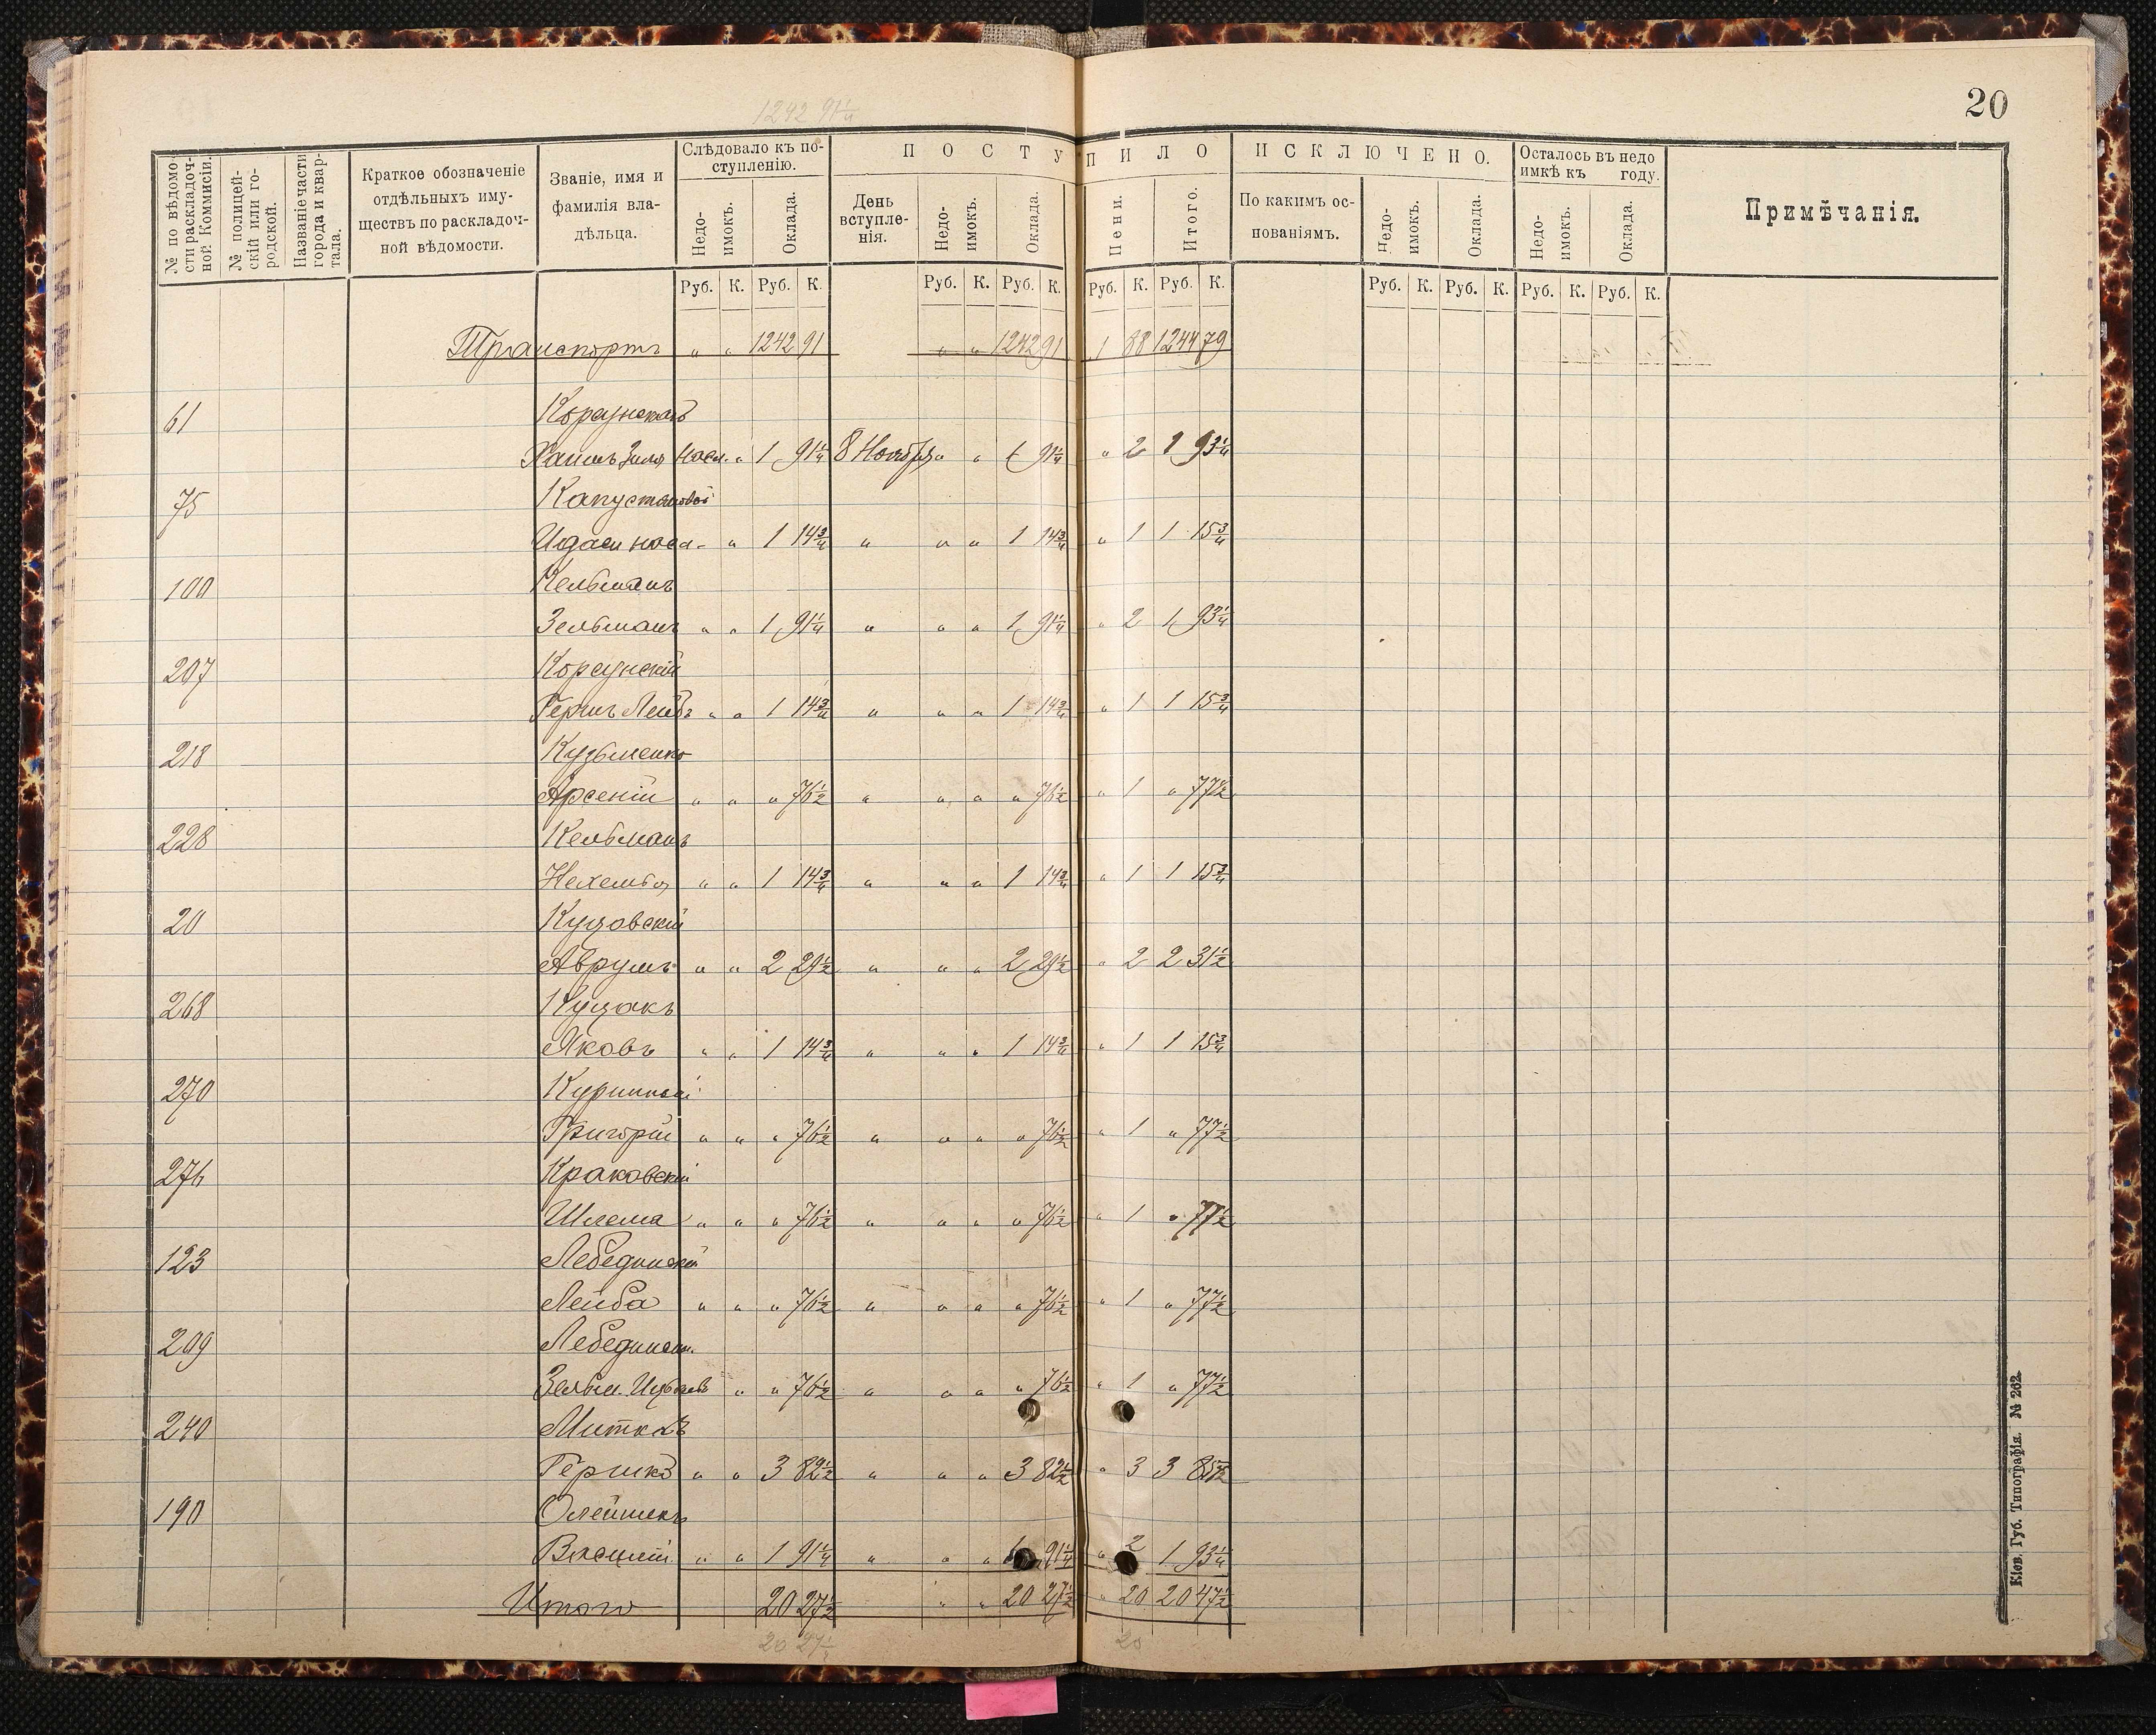 1242 91¼
20
№ по вѣдомости раскладочной Коммисіи.
№ полицейскій или городской.
Названіе части города и квартала.
Краткое обозначеніе отдѣльныхъ имуществъ по раскладочной вѣдомости.
Званіе, имя и фамилія владѣльца.
Слѣдовало къ поступленію.
Недоимокъ. Оклада.
ПОСТУПИЛО
День вступленія. Недоимокъ. Оклада. Пени. Итого.
ИСКЛЮЧЕНО.
По какимъ основаніямъ. Недоимокъ. Оклада.
Осталось въ недоимкѣ къ году.
Недоимокъ. Оклада.
Примѣчанія.
Руб. К. Руб. К. Руб. К. Руб. К. Руб. К. Руб. К. Руб. К. Руб. К. Руб. К. Руб. К.
Транспортъ " " 1242 91 " " 1242 91 1 88 1244 79
61 Корсунскаго
Хаимъ насл. " 1 91¼ 8 Ноября " " 1 91¼ " 2 1 93¼
75 Капустяновой
насл. " 1 14¾ " " " 1 14¾ " 1 1 15¾
100 Кельманъ
Зельманъ " " 1 91¼ " " " 1 91¼ " 2 1 93¼
207 Корсунскій
Гершъ Лейбъ " " 1 14¾ " " " 1 14¾ " 1 1 15¾
218 Кузьменко
Арсеній " " " 76½ " " " " 76½ " 1 " 77½
228 Кельманъ
Нехемья " " 1 14¾ " " " 1 14¾ " 1 1 15¾
20 Куцовскій
Аврумъ " " 2 29½ " " " 2 29½ " 2 2 31½
268 Куцакъ
Яковъ " " 1 14¾ " " " 1 14¾ " 1 1 15¾
270 Куринный
Григорій " " " 76½ " " " " 76½ " 1 " 77½
276 Краковскій
Шлема " " " 76½ " " " " 76½ " 1 " 77½
123 Лебединскій
Лейба " " " 76½ " " " " 76½ " 1 " 77½
209 Лебединск.
Зельм. " " 76½ " " " " 76½ " 1 " 77½
240 Миткаъ
Гершко " " 3 82½ " " " 3 82½ " 3 3 85½
190 Олейникъ
Василій " " 1 91¼ " " " 1 91¼ " 2 1 93¼
Итого 20 27½ " " 20 27½ " 20 20 47½
20 27¼ 20
Кіев. Губ. Типографія. № 262.